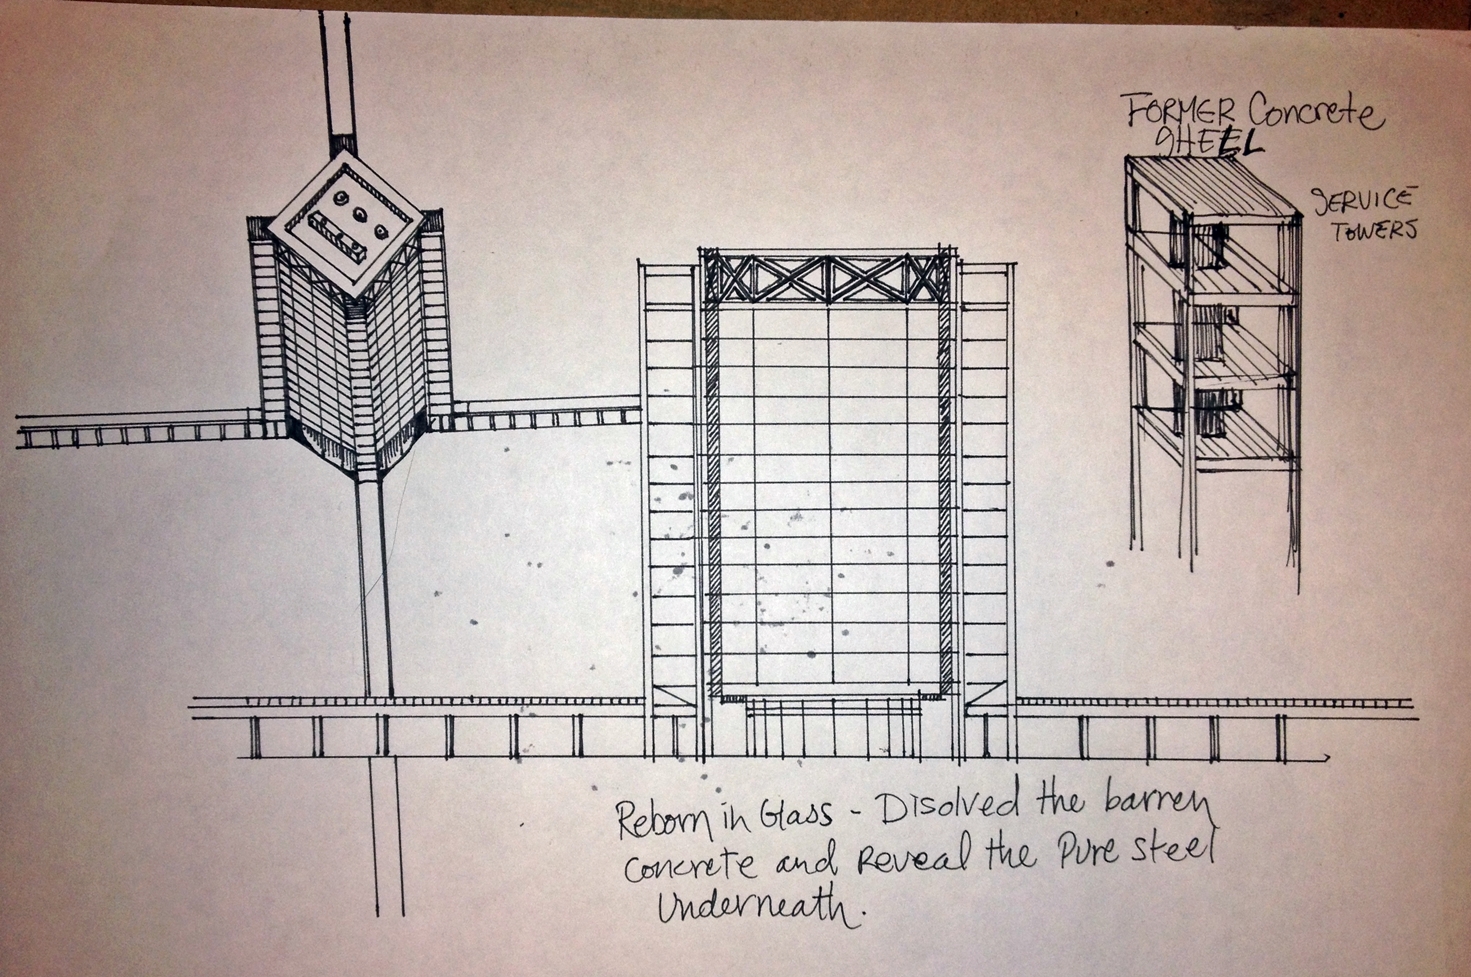 FORMER Concrete
SHELL
SERVICE
TOWERS
Reborn in Glass - Disolved the barren
concrete and Reveal the Pure steel
Underneath.